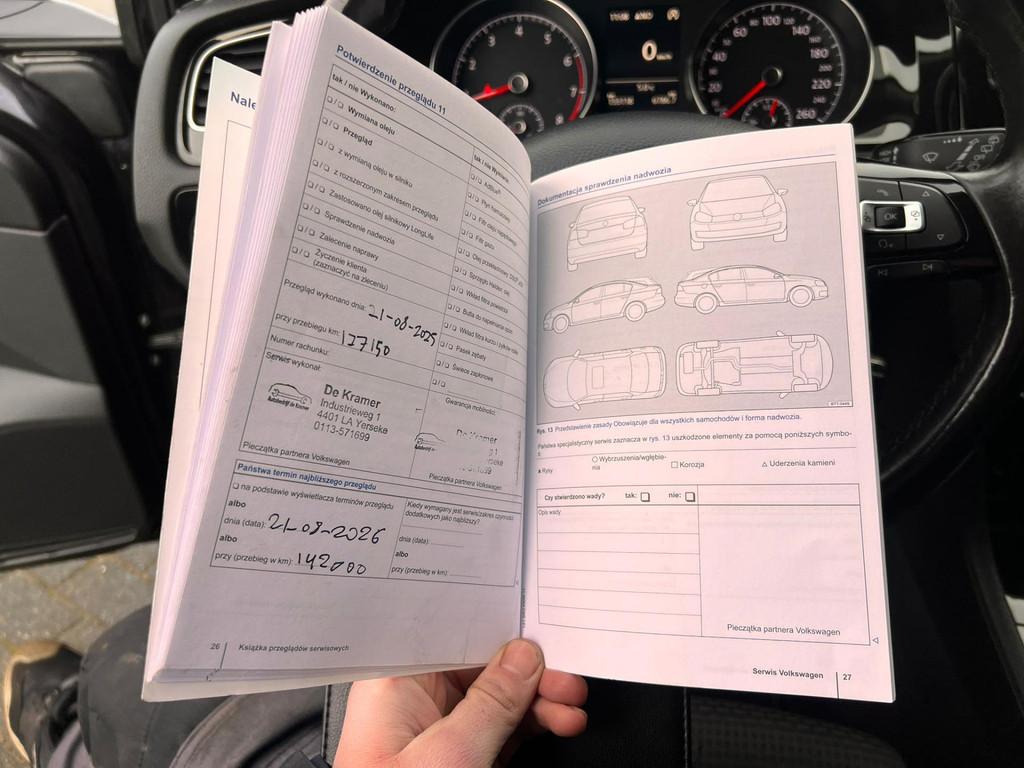 Nale
Potwierdzenie przeglądu 11
tak / nie Wykonano:
❏ / ❏ Wymiana oleju
❏ / ❏ Przegląd
❏ / ❏ z wymianą oleju w silniku
❏ / ❏ z rozszerzonym zakresem przeglądu
❏ / ❏ Zastosowano olej silnikowy LongLife
❏ / ❏ Sprawdzenie nadwozia
❏ / ❏ Zalecenie naprawy
❏ / ❏ Życzenie klienta
(zaznaczyć na zleceniu)
tak / nie Wymiana:
❏ / ❏ AdBlue®
❏ / ❏ Płyn hamulcowy
❏ / ❏ Filtr oleju napędowego
❏ / ❏ Filtr gazu
❏ / ❏ Olej przekładniowy
❏ / ❏ Sprzęgło Haldex: olej
❏ / ❏ Wkład filtra powietrza
❏ / ❏ Butla do napełniania opon
❏ / ❏ Wkład filtra kurzu i pyłków roślin
❏ / ❏ Pasek zębaty
❏ / ❏ Świece zapłonowe
❏ / ❏
Przegląd wykonano dnia: 21-08-2025
przy przebiegu km: 127150
Numer rachunku:
Serwis wykonał:
Autobedrijf de Kramer
De Kramer
Industrieweg 1
4401 LA Yerseke
0113-571699
Pieczątka partnera Volkswagen
Gwarancja mobilności:
De Kramer
Pieczątka partnera Volkswagen
Państwa termin najbliższego przeglądu
❏ na podstawie wyświetlacza terminów przeglądu
albo
dnia (data): 21-08-2026
albo
przy (przebieg w km): 142000
Kiedy wymagany jest serwis/zakres czynności
dodatkowych jako najbliższy?
dnia (data):
albo
przy (przebieg w km):
26 Książka przeglądów serwisowych
Dokumentacja sprawdzenia nadwozia
Rys. 13 Przedstawienie zasady Obowiązuje dla wszystkich samochodów i forma nadwozia.
Państwa specjalistyczny serwis zaznacza w rys. 13 uszkodzone elementy za pomocą poniższych symbo-
li:
Rysy
○ Wybrzuszenia/wgłębie-
nia
□ Korozja
△ Uderzenia kamieni
Czy stwierdzono wady? tak: ❏ nie: ❏
Opis wady
Pieczątka partnera Volkswagen
Serwis Volkswagen 27
2
3
4
5
6
7
8
0
km/h
20
40
60
80
100
120
140
160
180
200
220
240
260
OK